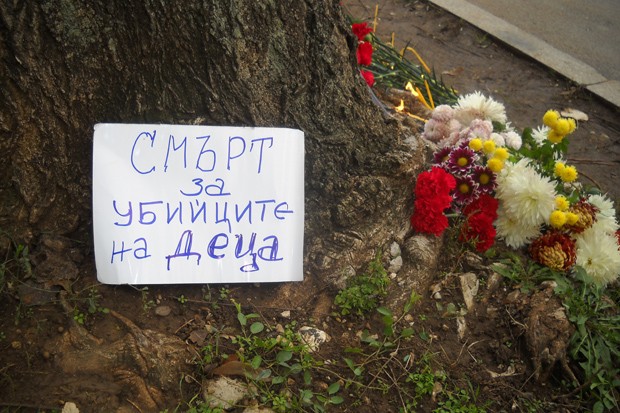 СМЪРТ
за
УБИЙЦИТЕ
на ДЕЦА